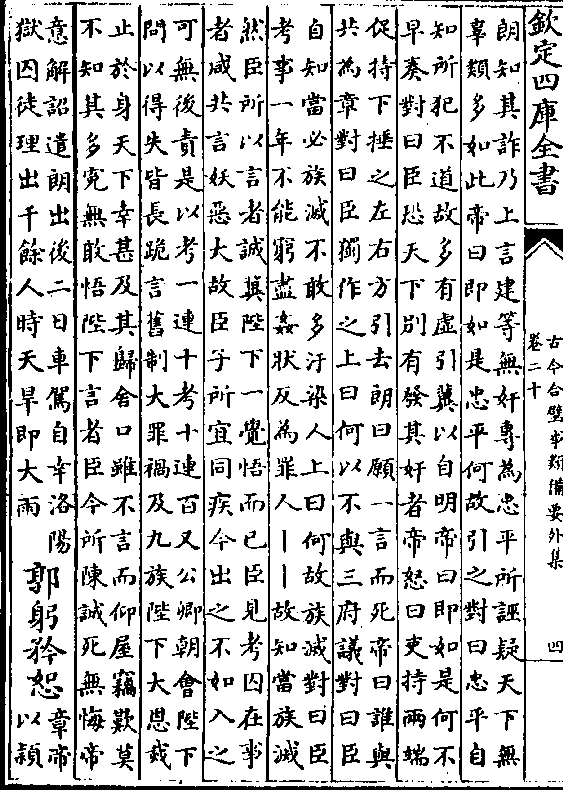 欽定四庫全書
古今合璧事類備要外集
卷二十
四
朗知其詐乃上言建等無奸專為忠平所誣疑天下無
辜類多如此帝曰即如是忠平何故引之對曰忠平自
知所犯不道故多有虛引冀以自明帝曰即如是何不
早奏對曰臣恐天下别有發其奸者帝怒曰吏持兩端
促持下捶之左右方引去朗曰願一言而死帝曰誰與
共為章對曰臣獨作之上曰何以不與三府議對曰臣
自知當必族滅不敢多汙染人上曰何故族滅對曰臣
考事一年不能窮盡姦狀反為罪人丨丨故知當族滅
然臣所以言者誠冀陛下一覺悟而已臣見考囚在事
者咸共言妖惡大故臣子所宜同疾今出之不如入之
可無後責是以考一連十考十連百又公卿朝會陛下
問以得失皆長跪言舊制大罪禍及九族陛下大恩裁
止於身天下幸甚及其歸舍口雖不言而仰屋竊歎莫
不知其多寃無敢悟陛下言者臣今所陳誠死無悔帝
意解詔遣朗出後二日車駕自幸洛陽
獄囚徒理出千餘人時天旱即大雨
郭躬矜恕
章帝
以潁